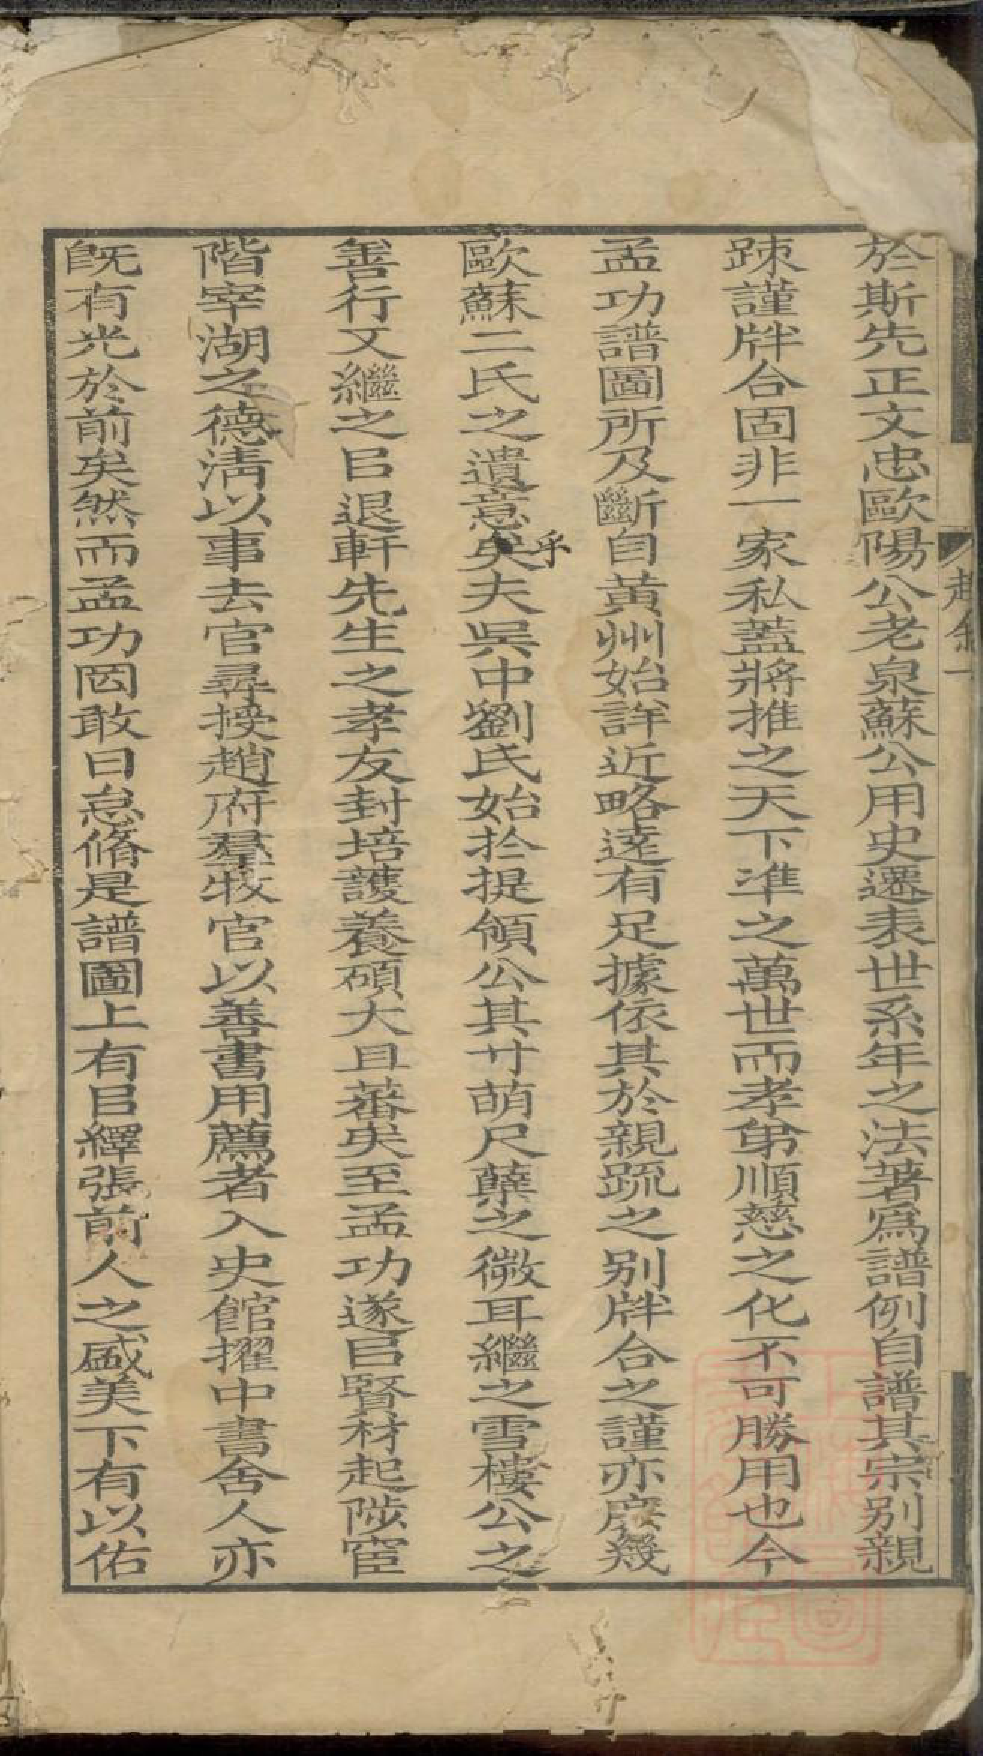 於斯先正文忠歐陽公老泉蘇公用史遷表世系年之法著爲譜例自譜其宗别親
踈謹牉合固非一家私蓋將推之天下準之萬世而孝弟順慈之化不可勝用也今
孟功譜圖所及斷自黄州始詳近略逺有足據依其於親疏之别牉合之謹亦庶幾
歐蘇二氏之遺意矣乎夫吳中劉氏始扵提領公其寸萌尺蘖之微耳繼之雪樓公之
善行又繼之㠯退軒先生之孝友封培護養碩大且蕃矣至孟功遂㠯賢材起陟宦
階宰湖之德淸以事去官尋授趙府羣牧官以善書用薦者入史館擢中書舍人亦
旣有光於前矣然而孟功罔敢曰怠脩是譜圖上有㠯繹張前人之盛美下有以佑
趙叙一